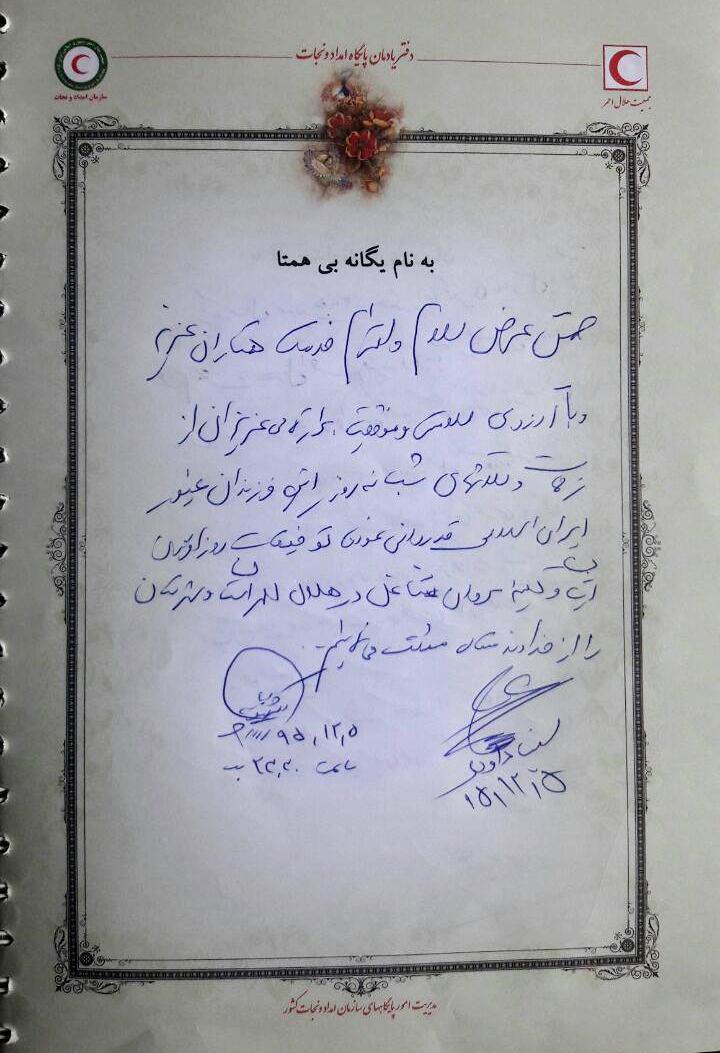 دفتر یادمان پایگاه امداد و نجات
سازمان امداد و نجات
جمعیت هلال احمر
به نام یگانه بی همتا
ضمن عرض سلام و احترام خدمت همکاران عزیز
و با آرزوی سلامتی و موفقیت برای عزیزان از
زحمات و تلاشهای شبانه روزی این فرزندان غیور
ایران اسلامی قدردانی نموده توفیقات روزافزون
و کلیه پرسنل شاغل در هلال احمر استان و شهرستان
را از خداوند متعال مسئلت می نمائیم
۹۵,۱۲,۵
ساعت ۲۳,۳۰
داودی
۹۵,۱۲,۵
مدیریت امور پایگاههای سازمان امداد و نجات کشور